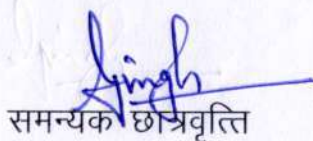 Singh
समन्यक छात्रवृत्ति